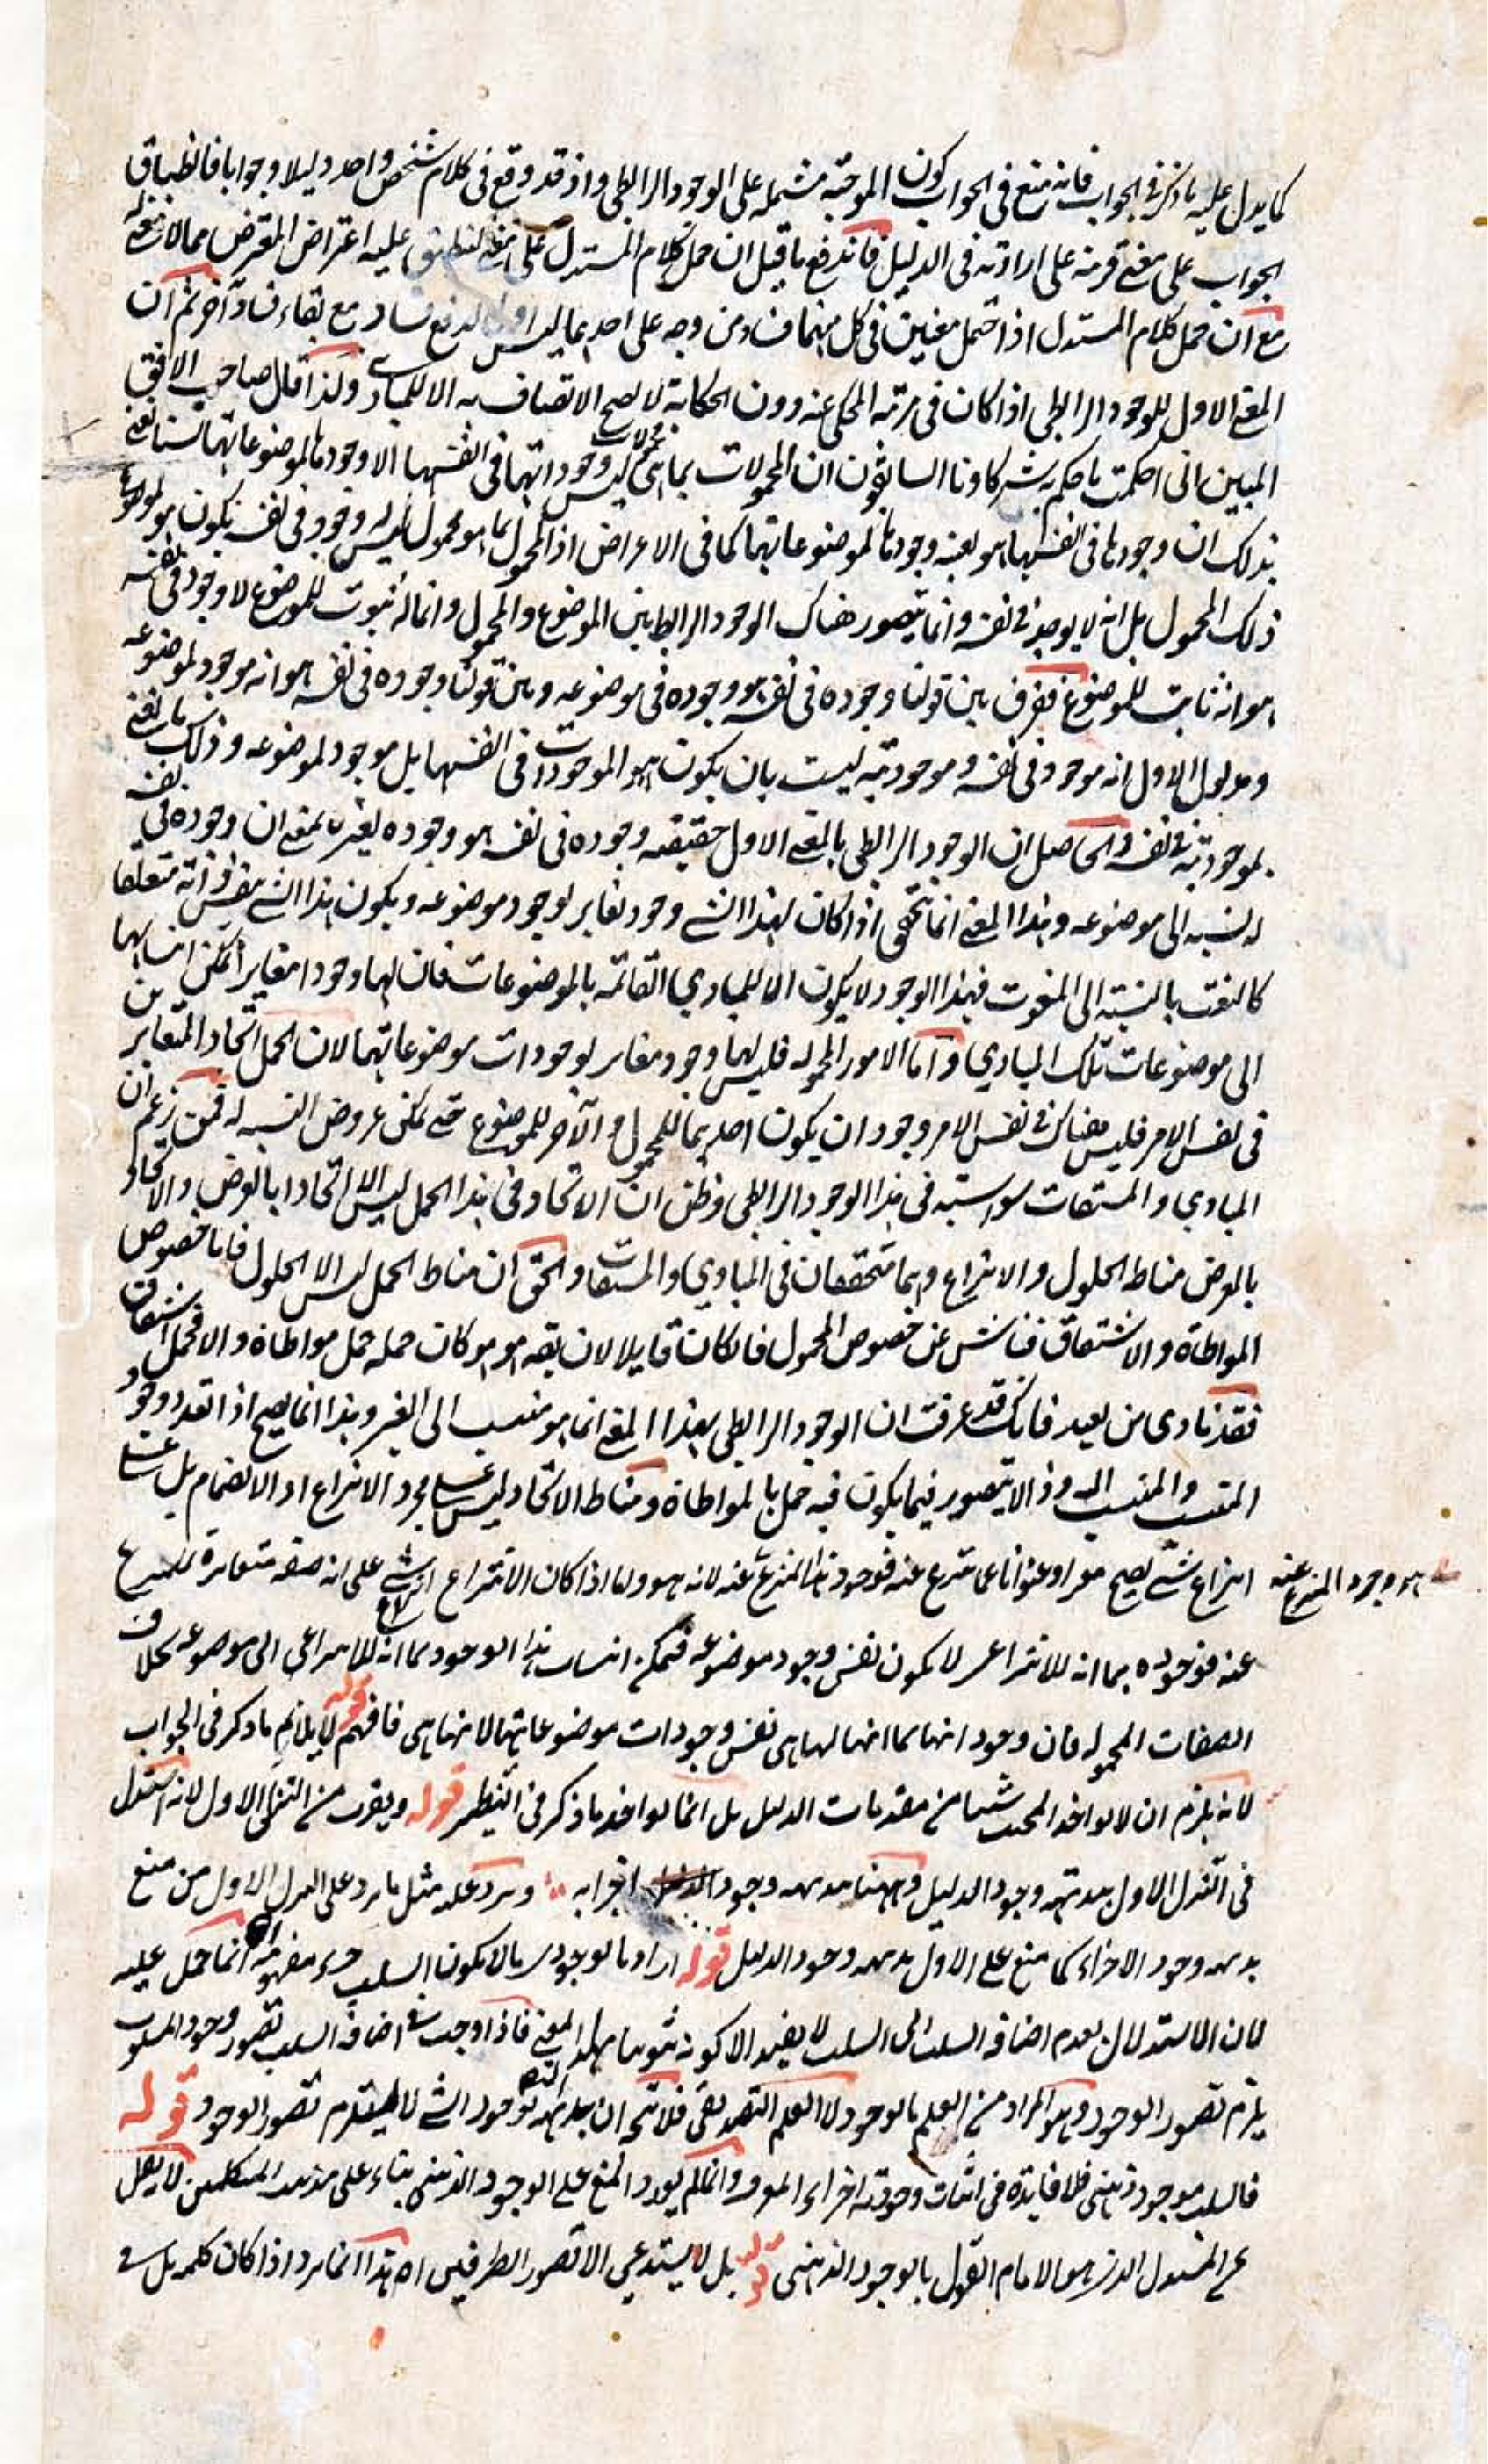 كما يدل عليه ما ذكر في الجواب فانه منع في الجواب كون الموجبة مشتملة على الوجود الرابطي واذ قد وقع في كلام شخص واحد دليلا وجوابا فانطباق
الجواب على معنى قرينة على ارادته في الدليل فاندفع ما قيل ان حمل كلام المستدل على معنى لينطبق عليه اعتراض المعترض مما لا
مع ان حمل كلام المستدل اذا احتمل معنيين في كل منهما فساد من وجه على احدهما ليس لدفع فساد مع بقاء فساد آخر ثم ان
المعنى الاول للوجود الرابطي اذا كان في مرتبة المحكي عنه دون الحكاية لا يصح الاتصاف به الا للمبادي ولذا قال صاحب الافق
المبين اني احكمت ما حكم به شركاونا السابقون ان المحمولات بما هي محمولات ليس وجوداتها في انفسها الا وجودها لموضوعاتها لسنا نعني
بذلك ان وجودها في انفسها هو بعينه وجودها لموضوعاتها كما في الاعراض اذ المحمول بما هو محمول ليس له وجود في نفسه يكون هو لموضوع
ذلك المحمول بل انه لا يوجد في نفسه وانما يتصور هناك الوجود الرابط بين الموضوع والمحمول وانما له ثبوت للموضوع لا وجود في نفسه
هو انه ثابت للموضوع ففرق بين قولنا وجوده في نفسه هو وجوده في موضوعه وبين قولنا وجوده في نفسه هو انه موجود لموضوعه
ومدلول الاول انه موجود في نفسه وموجوديته ليست بان يكون هو الموجودات في انفسها بل موجود لموضوعه وذلك ما نعني
بموجوديته في نفسه والحاصل ان الوجود الرابطي بالمعنى الاول حقيقة وجوده في نفسه هو وجوده لغيره بمعنى ان وجوده في نفسه
له نسبة الى موضوعه وهذا المعنى انما يتحقق اذا كان لهذا الشئ وجود مغاير لوجود موضوعه ويكون هذا الشئ بنفس ذاته متعلقا
كالنعت بالنسبة الى المنعوت فهذا الوجود لا يكون الا للمبادي القائمة بالموضوعات فان لها وجودا مغايرا يمكن انتسابها
الى موضوعات تلك المبادي واما الامور المحمولة فليس لها وجود مغاير لوجودات موضوعاتها لان الحمل اتحاد المتغايرين
في نفس الامر فليس هناك في نفس الامر وجودان يكون احدهما للمحمول والآخر للموضوع حتى يمكن عروض النسبة له فمن زعم ان
المبادي والمشتقات سواسية في هذا الوجود الرابطي وظن ان الاتحاد في هذا الحمل ليس الا اتحادا بالعرض والاتحاد
بالعرض مناط الحلول والانتزاع وهما متحققان في المبادي والمشتقات والحق ان مناط الحمل ليس الا الحلول فاما خصوص
المواطاة والاشتقاق فناش عن خصوص المحمول فان كان قابلا لان يقع هو هو كان حمله حمل مواطاة والا فحمل اشتقاق
فقد نادى من بعيد فانك قد عرفت ان الوجود الرابطي بهذا المعنى انما هو منتسب الى الغير وهذا انما يصح اذا تعدد وجود
المنتسب والمنتسب اليه وذا لا يتصور فيما يكون فيه حمل بالمواطاة ومناط الاتحاد ليس على مجرد الانتزاع او الانضمام بل على
انتزاع شئ يصح عنوانا عما ينتزع عنه فوجود هذا المنتزع عنه لانه هو واما اذا كان الانتزاع انتزاع شئ على انه صفة متغايرة للمنتزع
هو وجود المنتزع عنه
عنه فوجوده بما انه للانتزاعي لا يكون نفس وجود موضوعه فيمكن انتساب هذا الوجود بما انه للانتزاعي الى موضوعه بخلاف
الصفات المحمولة فان وجود انها بما انها لها هي نفس وجودات موضوعاتها لانها هي فافهم قوله لا يلائم ما ذكر في الجواب
لانه يلزم ان لا يواخذ المجيب شيئا من مقدمات الدليل بل انما يواخذ ما ذكر في التنظير قوله ويقرب من التنزل الاول لانه استدل
في التنزل الاول ببداهة وجود الدليل وههنا ببداهة وجود اجزائه ويرد عليه مثل ما يرد على التنزل الاول من منع
بداهة وجود الاجزاء كما منع على الاول بداهة وجود الدليل قوله اراد بالوجودي ما لا يكون السلب جزء مفهومه انما حمل عليه
لان الاستدلال بعدم اضافة السلب الى السلب لا يفيد الا كونه ثبوتيا بهذا المعنى فاذا وجب اضافة السلب تصور وجود المسلوب
يلزم تصور الوجود وهو المراد من العلم بالوجود لا العلم التصديقي فلا يتجه ان بداهة التصديق بوجود الشئ لا يستلزم تصور الوجود قوله
فالسلب موجود ذهني فلا فايدة في اثبات وجودية اجزاء المعرف وانما لم يورد المنع على الوجود الذهني بناء على مذهب المتكلمين لا يقبل
المستدل الذي هو الامام القول بالوجود الذهني قوله بل لا يستدعي الا تصور الطرفين اه هذا انما يرد اذا كان كلمة بل